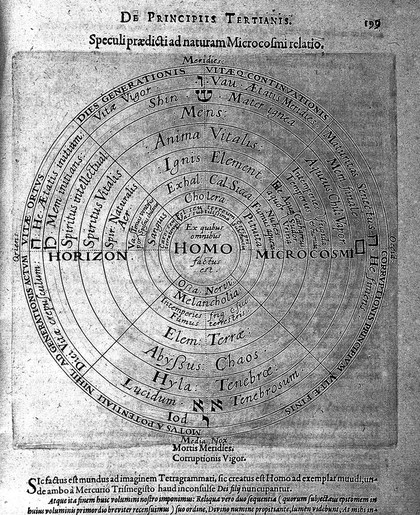 DE PRINCIPIIS TERTIANIS.
199
Speculi prædicti ad naturam Microcosmi relatio.
Meridies.
DIES GENERATIONIS VITÆQ; CONTINVATIONIS
ו Vau Ætatis Meridies
Vitæ Vigor
Shin ש Mater ignea
Mens
Anima Vitalis
Ignis Element
Exhal Cal Sicca
Cholera
Ex quibus
omnibus
HOMO
factus
est
HORIZON
MICROCOSMI
VITÆ ORTVS
He Ætatis initium
Mem initians
Spiritus intellectual
Spiritus Vitalis
Spir Naturalis
Aer
Sanguis
Pituita
Maturitas senectus
Mem finiens
Aqua
CORRVPTIONIS PRINCIPIVM VITÆ FINIS
NIHIL AD GENERATIONIS ACTVM
MOTVS A POTENTIA
Ossa Nervi
Melancholia
Intemperies frig sicca
Fumus terrestris
Elem: Terræ
Abyssus Chaos
Hyla: Tenebræ
Lucidum א א Tenebrosum
י Iod
Media Nox
Mortis Meridies.
Corruptionis Vigor.
Sic factus est mundus ad imaginem Tetragrammati, sic creatus est Homo ad exemplar mundi, un-
de ambo à Mercurio Trismegisto haud inconsulsè Dei filij nuncupantur.
Atque ita finem huic volumini nostro imponimus: Reliqua vero duo sequentia (quorum subjectas epistomem in
huius voluminis primordio breviter recensuimus) suo ordine, Divino numine propitiante, lumen videbunt, As mihi in-